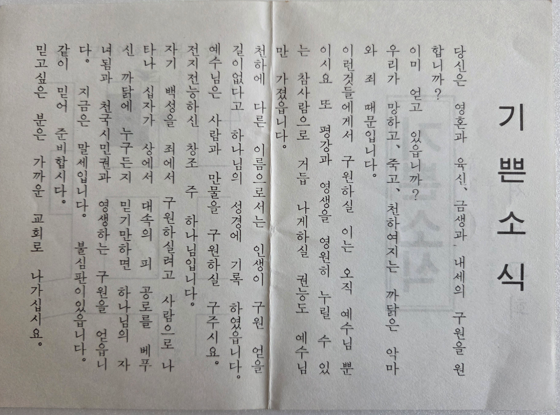 기쁜소식
당신은 영혼과 육신、금생과 내세의 구원을 원
합니까?
이미 얻고 있읍니까?
우리가 망하고、죽고、천하여지는 까닭은 악마
와 죄 때문입니다。
이런것들에게서 구원하실 이는 오직 예수님 뿐
이시요 또 평강과 영생을 영원히 누릴 수 있
는 참사람으로 거듭 나게하실 권능도 예수님
만 가졌읍니다。
천하에 다른 이름으로서는 인생이 구원 얻을
길이없다고 하나님의 성경에 기록 하였읍니다。
예수님은 사람과 만물을 구원하실 구주시요。
전지전능하신 창조 주 하나님입니다。
자기 백성을 죄에서 구원하실려고 사람으로 나
타나 십자가 상에서 대속의 피 공로를 베푸
신 까닭에 누구든지 믿기만하면 하나님의 자
녀됨과 천국시민권과 영생하는 구원을 얻읍니
다。 지금은 말세입니다。 불심판이있읍니다。
같이 믿어 준비합시다。
믿고싶은 분은 가까운 교회로 나가십시요。